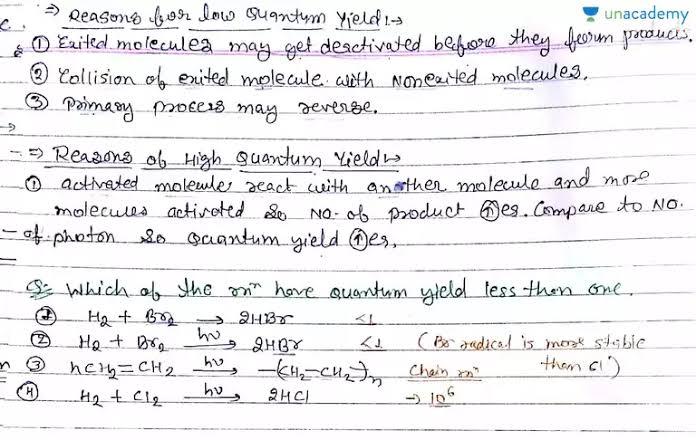 ⇒ Reasons for low Quantum Yield :→
unacademy
c.
① Exited molecules may get deactivated before they form products.
② Collision of exited molecule with Nonexited molecules.
③ Primary process may reverse.
⇒ Reasons of High Quantum Yield →
① activated molecules react with another molecule and more
molecules activated so No. of product ↑es. Compare to No.
of photon so Quantum yield ↑es.
Q:- Which of the rxⁿ have quantum yield less than one.
① H₂ + Br₂ → 2HBr <1
② H₂ + Br₂ hν→ 2HBr <1 (Br radical is more stable
than Cl˙)
③ nCH₂=CH₂ hν→ -(CH₂-CH₂)n Chain rxⁿ
④ H₂ + Cl₂ hν→ 2HCl → 10⁶